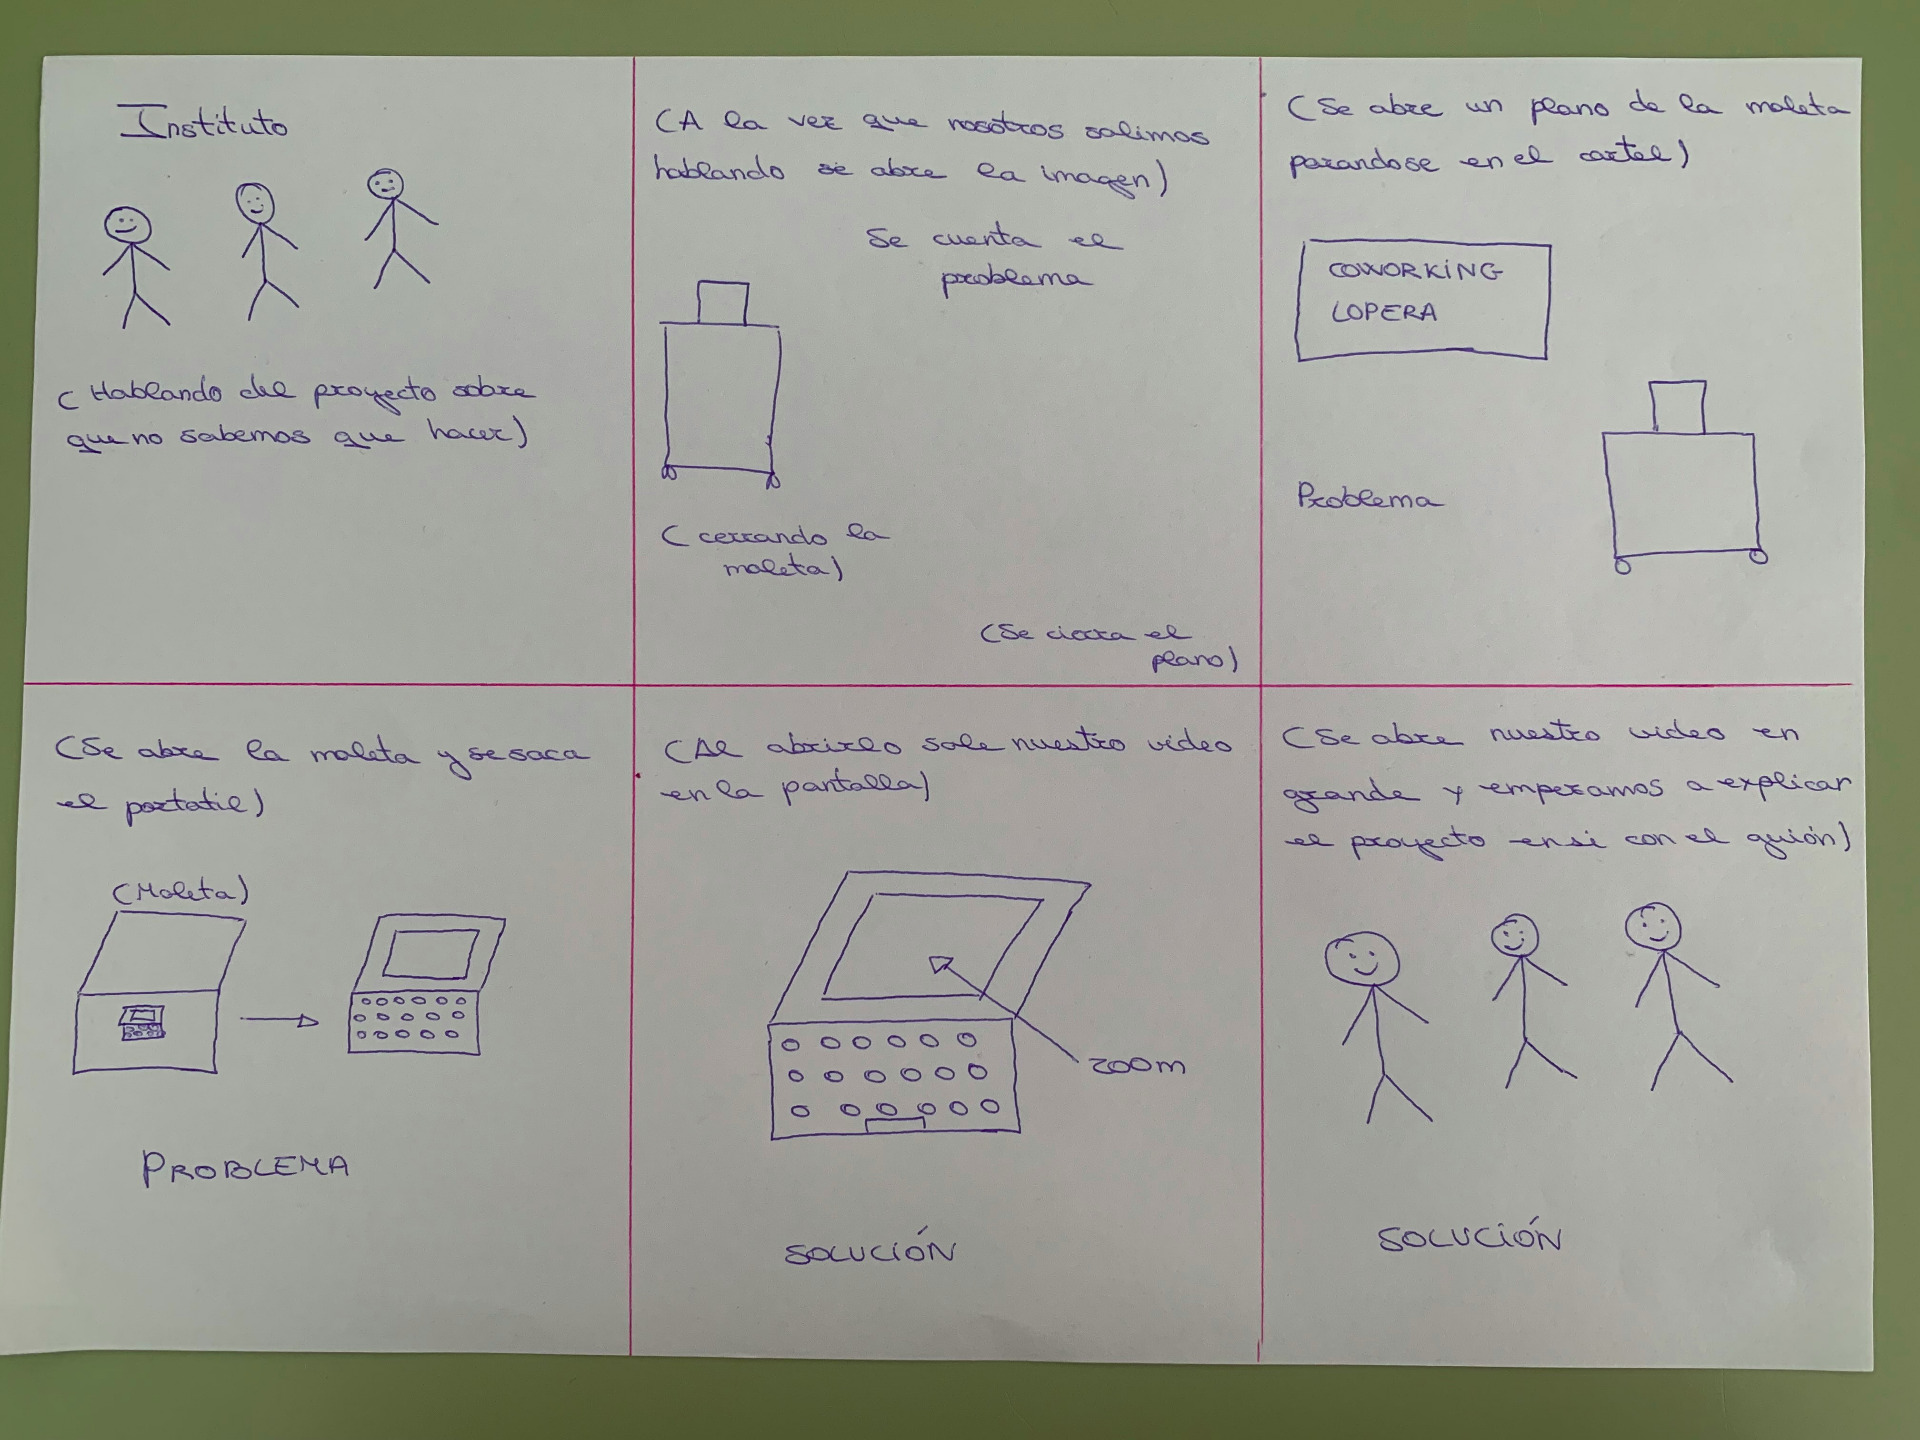 Instituto
( Hablando del proyecto sobre
que no sabemos que hacer)
(A la vez que nosotros salimos
hablando se abre la imagen)
Se cuenta el
problema
( cerrando la
maleta)
(Se cierra el
plano)
(Se abre un plano de la maleta
parandose en el cartel)
COWORKING
LOPERA
Problema
(Se abre la maleta y se saca
el portatil)
(Maleta)
PROBLEMA
(Al abrirlo sale nuestro video
en la pantalla)
zoom
SOLUCIÓN
(Se abre nuestro video en
grande y empezamos a explicar
el proyecto ensi con el guión)
SOLUCIÓN